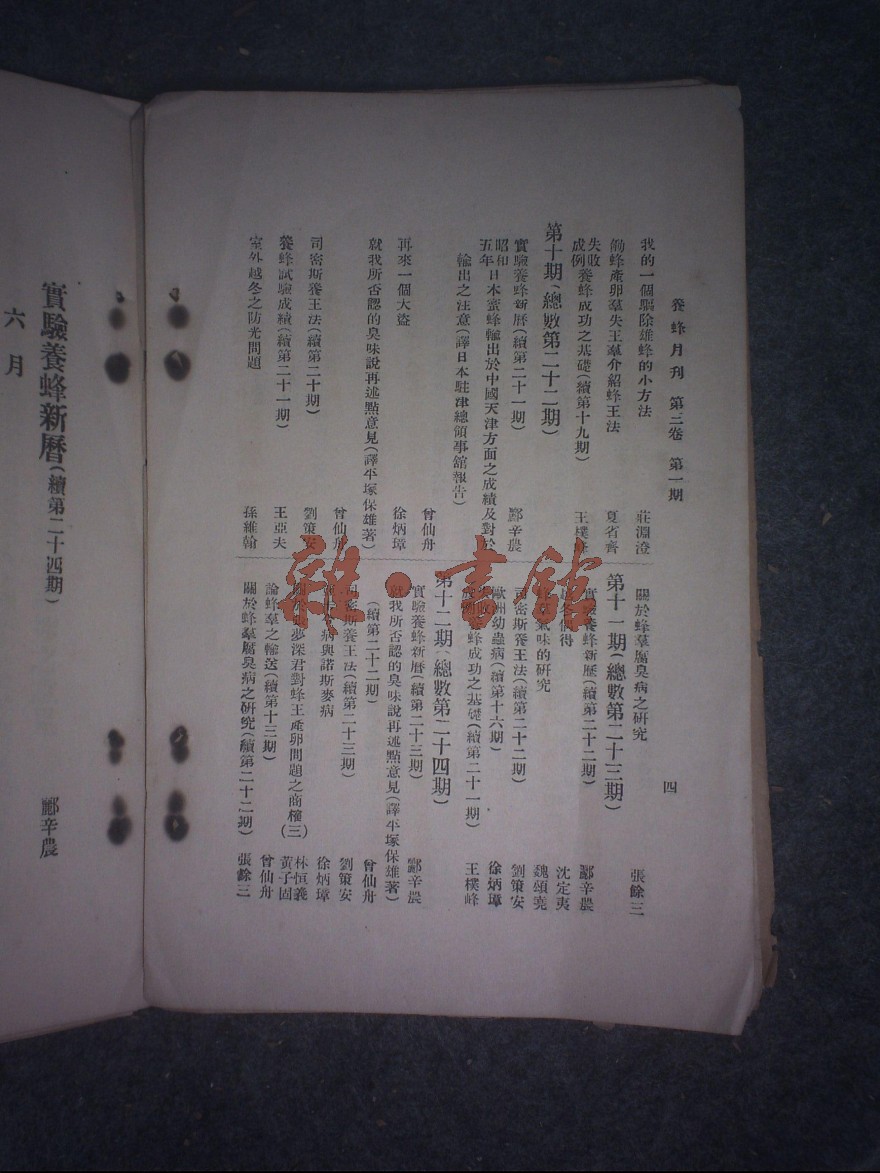 養蜂月刊 第三卷 第一期
四
我的一個驅除雄蜂的小方法 莊淵澄
蜂產卵羣失王羣介紹蜂王法 夏省齊
失敗成例養蜂成功之基礎(續第十九期) 王樸
第十期(總數第二十二期)
實驗養蜂新曆(續第二十一期) 酈辛農
昭和五年日本蜜蜂輸出於中國天津方面之成績及對於
輸出之注意(譯日本駐津總領事館報告) 曾仙舟
再來一個大盜 徐炳璋
就我所否認的臭味說再述點意見(譯平塚保雄著) 曾仙舟
司密斯養王法(續第二十期) 劉策安
養蜂試驗成績(續第二十一期) 王亞夫
室外越冬之防光問題 孫維翰
關於蜂羣腐臭病之研究 張餘三
第十一期(總數第二十三期)
實驗養蜂新歷(續第二十二期) 酈辛農
得 沈定夷
氣味的研究 魏頌堯
司密斯養王法(續第二十二期) 劉策安
歐洲幼蟲病(續第十六期) 徐炳璋
失敗成例養蜂成功之基礎(續第二十一期) 王樸峰
第十二期(總數第二十四期)
實驗養蜂新曆(續第二十三期) 酈辛農
就我所否認的臭味說再述點意見(譯平塚保雄著)
(續第二十二期) 曾仙舟
司密斯養王法(續第二十三期) 劉策安
病與諾斯麥病 徐炳璋
關於 夢深君對蜂王產卵問題之商榷(三) 林恒義 黃子固
論蜂羣之輸送(續第十三期) 曾仙舟
關於蜂羣腐臭病之研究(續第二十二期) 張餘三
實驗養蜂新曆(續第二十四期) 酈辛農
六月
雜·書館